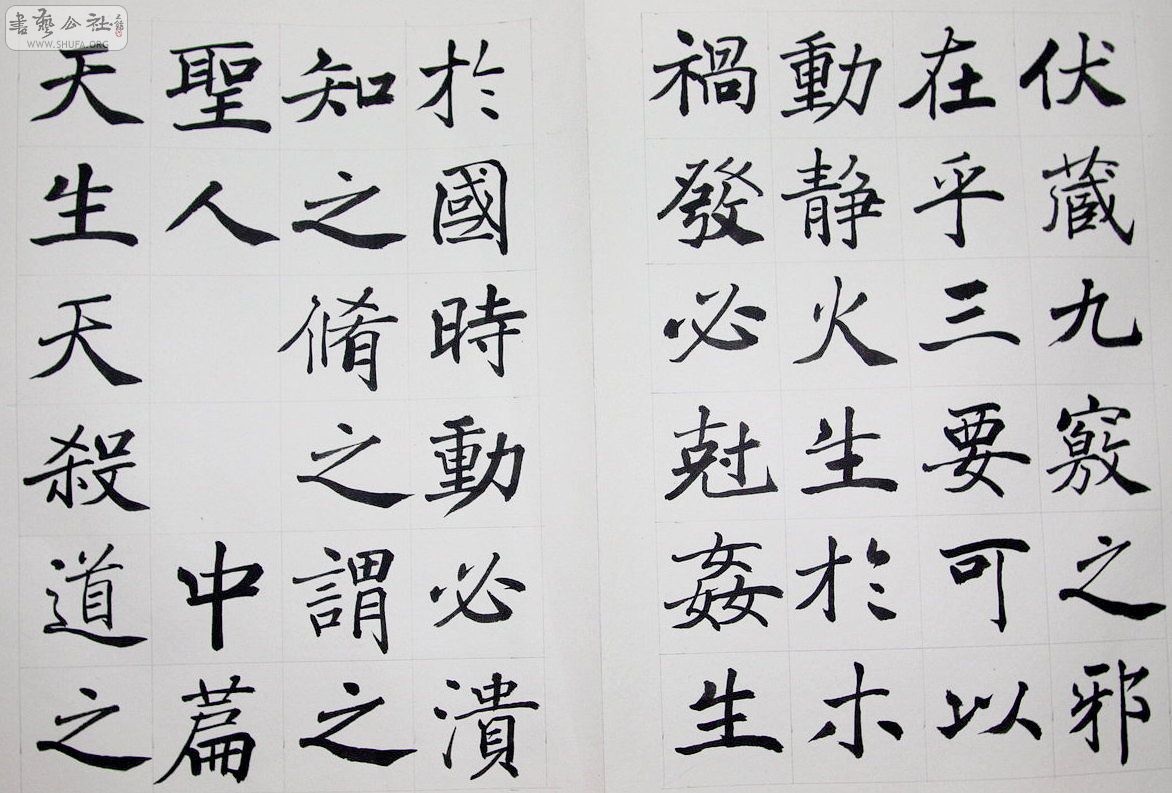 伏藏九竅之邪
在乎三要可以
動静火生於木
禍發必尅姦生
於國時動必潰
知之脩之謂之
聖人 中篇
天生天殺道之
書藝公社
WWW.SHUFA.ORG